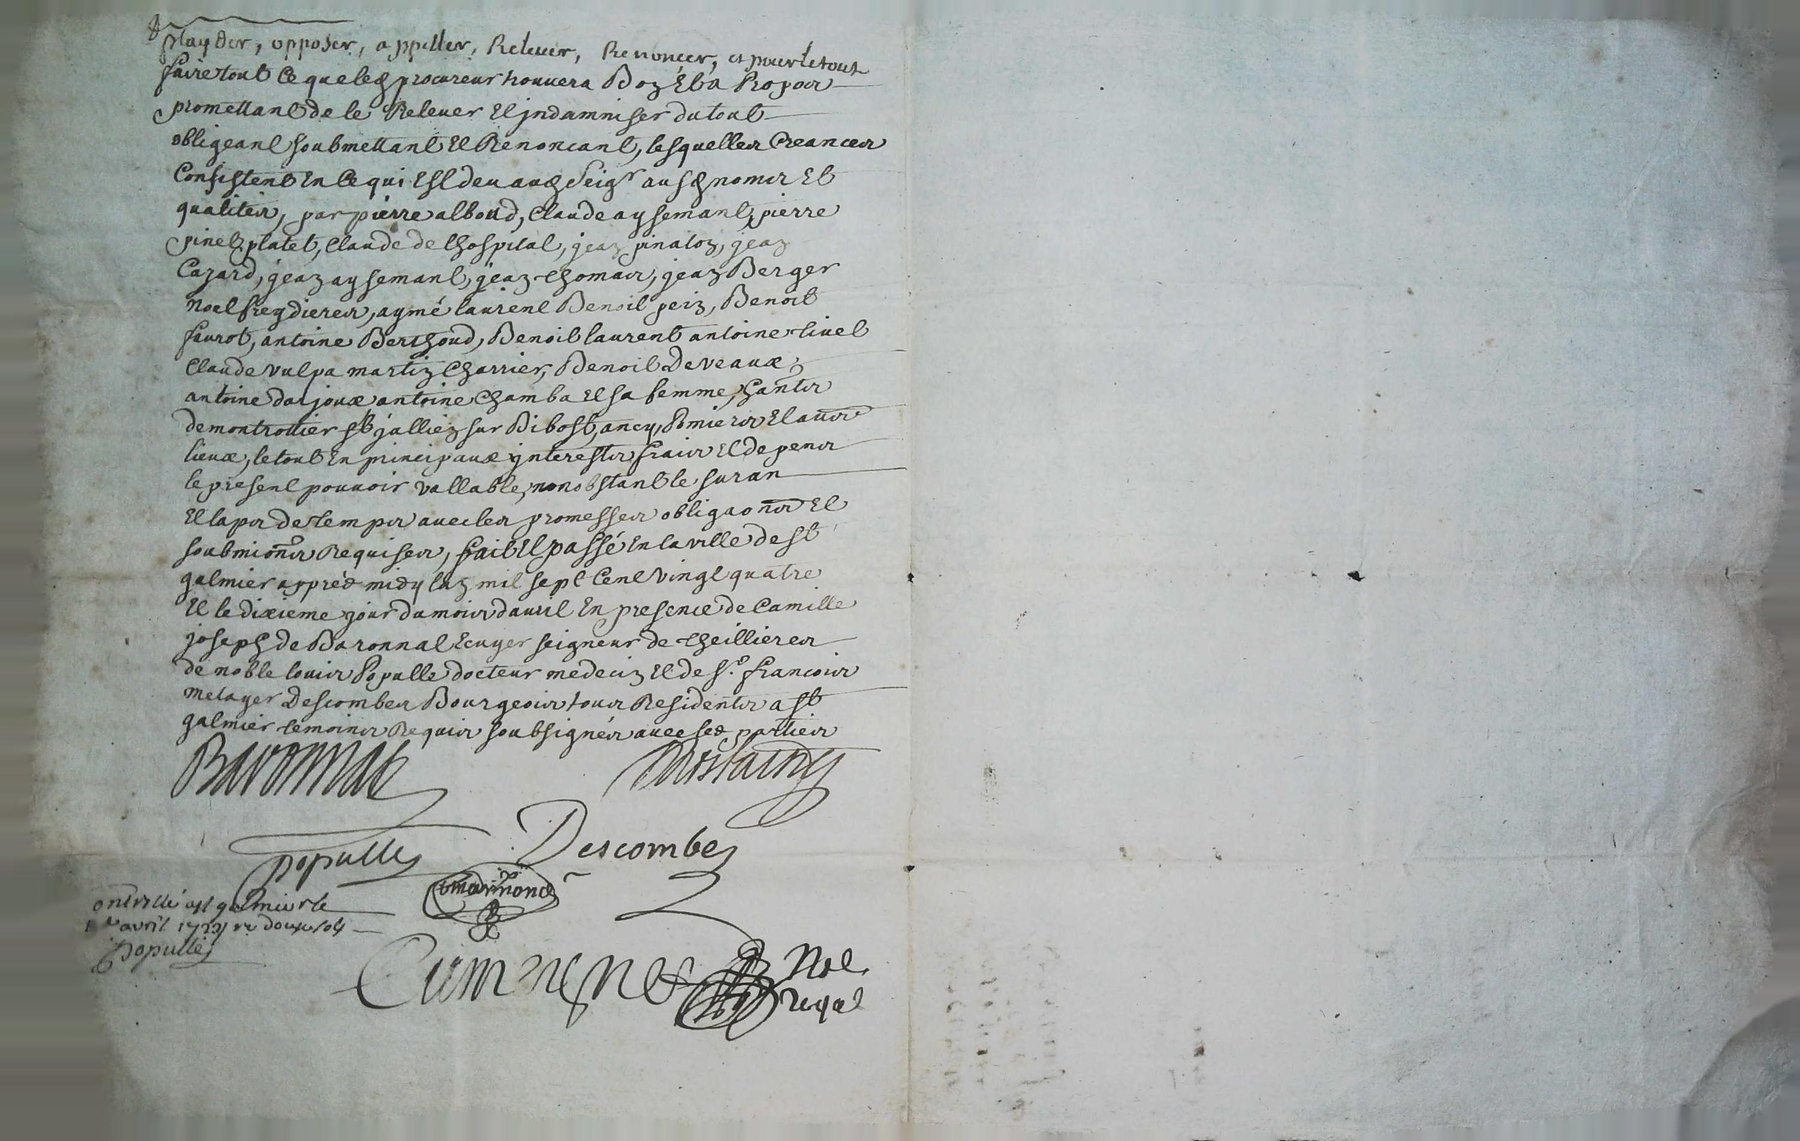 playder, opposer, appeller, Relever, Renoncer, et pour le tout
faire tout ce que led procureur trouvera Bon Et a Propos
promettant de le Relever Et jndamniser du tout
obligeant soubmettant Et Renoncant, lesquelles Creances
Consistent En Ce qui Est deu aud Seigr ausd noms Et
qualites, par pierre alboud, Claude aysemant, pierre
pinet, platet, Claude de lhospital, jean pinaton, jean
Cazard, jean aysemant, jean thomas, jean Berger
Noel freydieres, aymé laurent Benoit pein, Benoit
favrot, antoine Berthoud, Benoit laurent antoine tivel
Claude vulpa martin Charrier, Benoit Deveaux
antoine dasjoux antoine Chamba Et sa femme,
de montrottier st jullien sur Bibost, ancy, Pomiers Et aures
lieux, le tout En principaux jnterests frais Et depens
le present pouvoir vallable, nonobstant le suran
Et laps de temps avec les promesses obligaons Et
soubmions Requises, fait Et passé En la ville de st
galmier appred midy lan mil sept Cent vingt quatre
Et le dixieme jour du mois davril En presence de Camille
joseph de Baronnat Ecuyer seigneur de theillieres
de noble louis Populle docteur medecin Et de sr. francois
metayer Descombes Bourgeois tous Residents a st
galmier temoins Requis soubsignés avec sed parties
Baronnat
populle
Descombes
st galmier le
avril 1724 douze sols
Populle
Noe.
royal